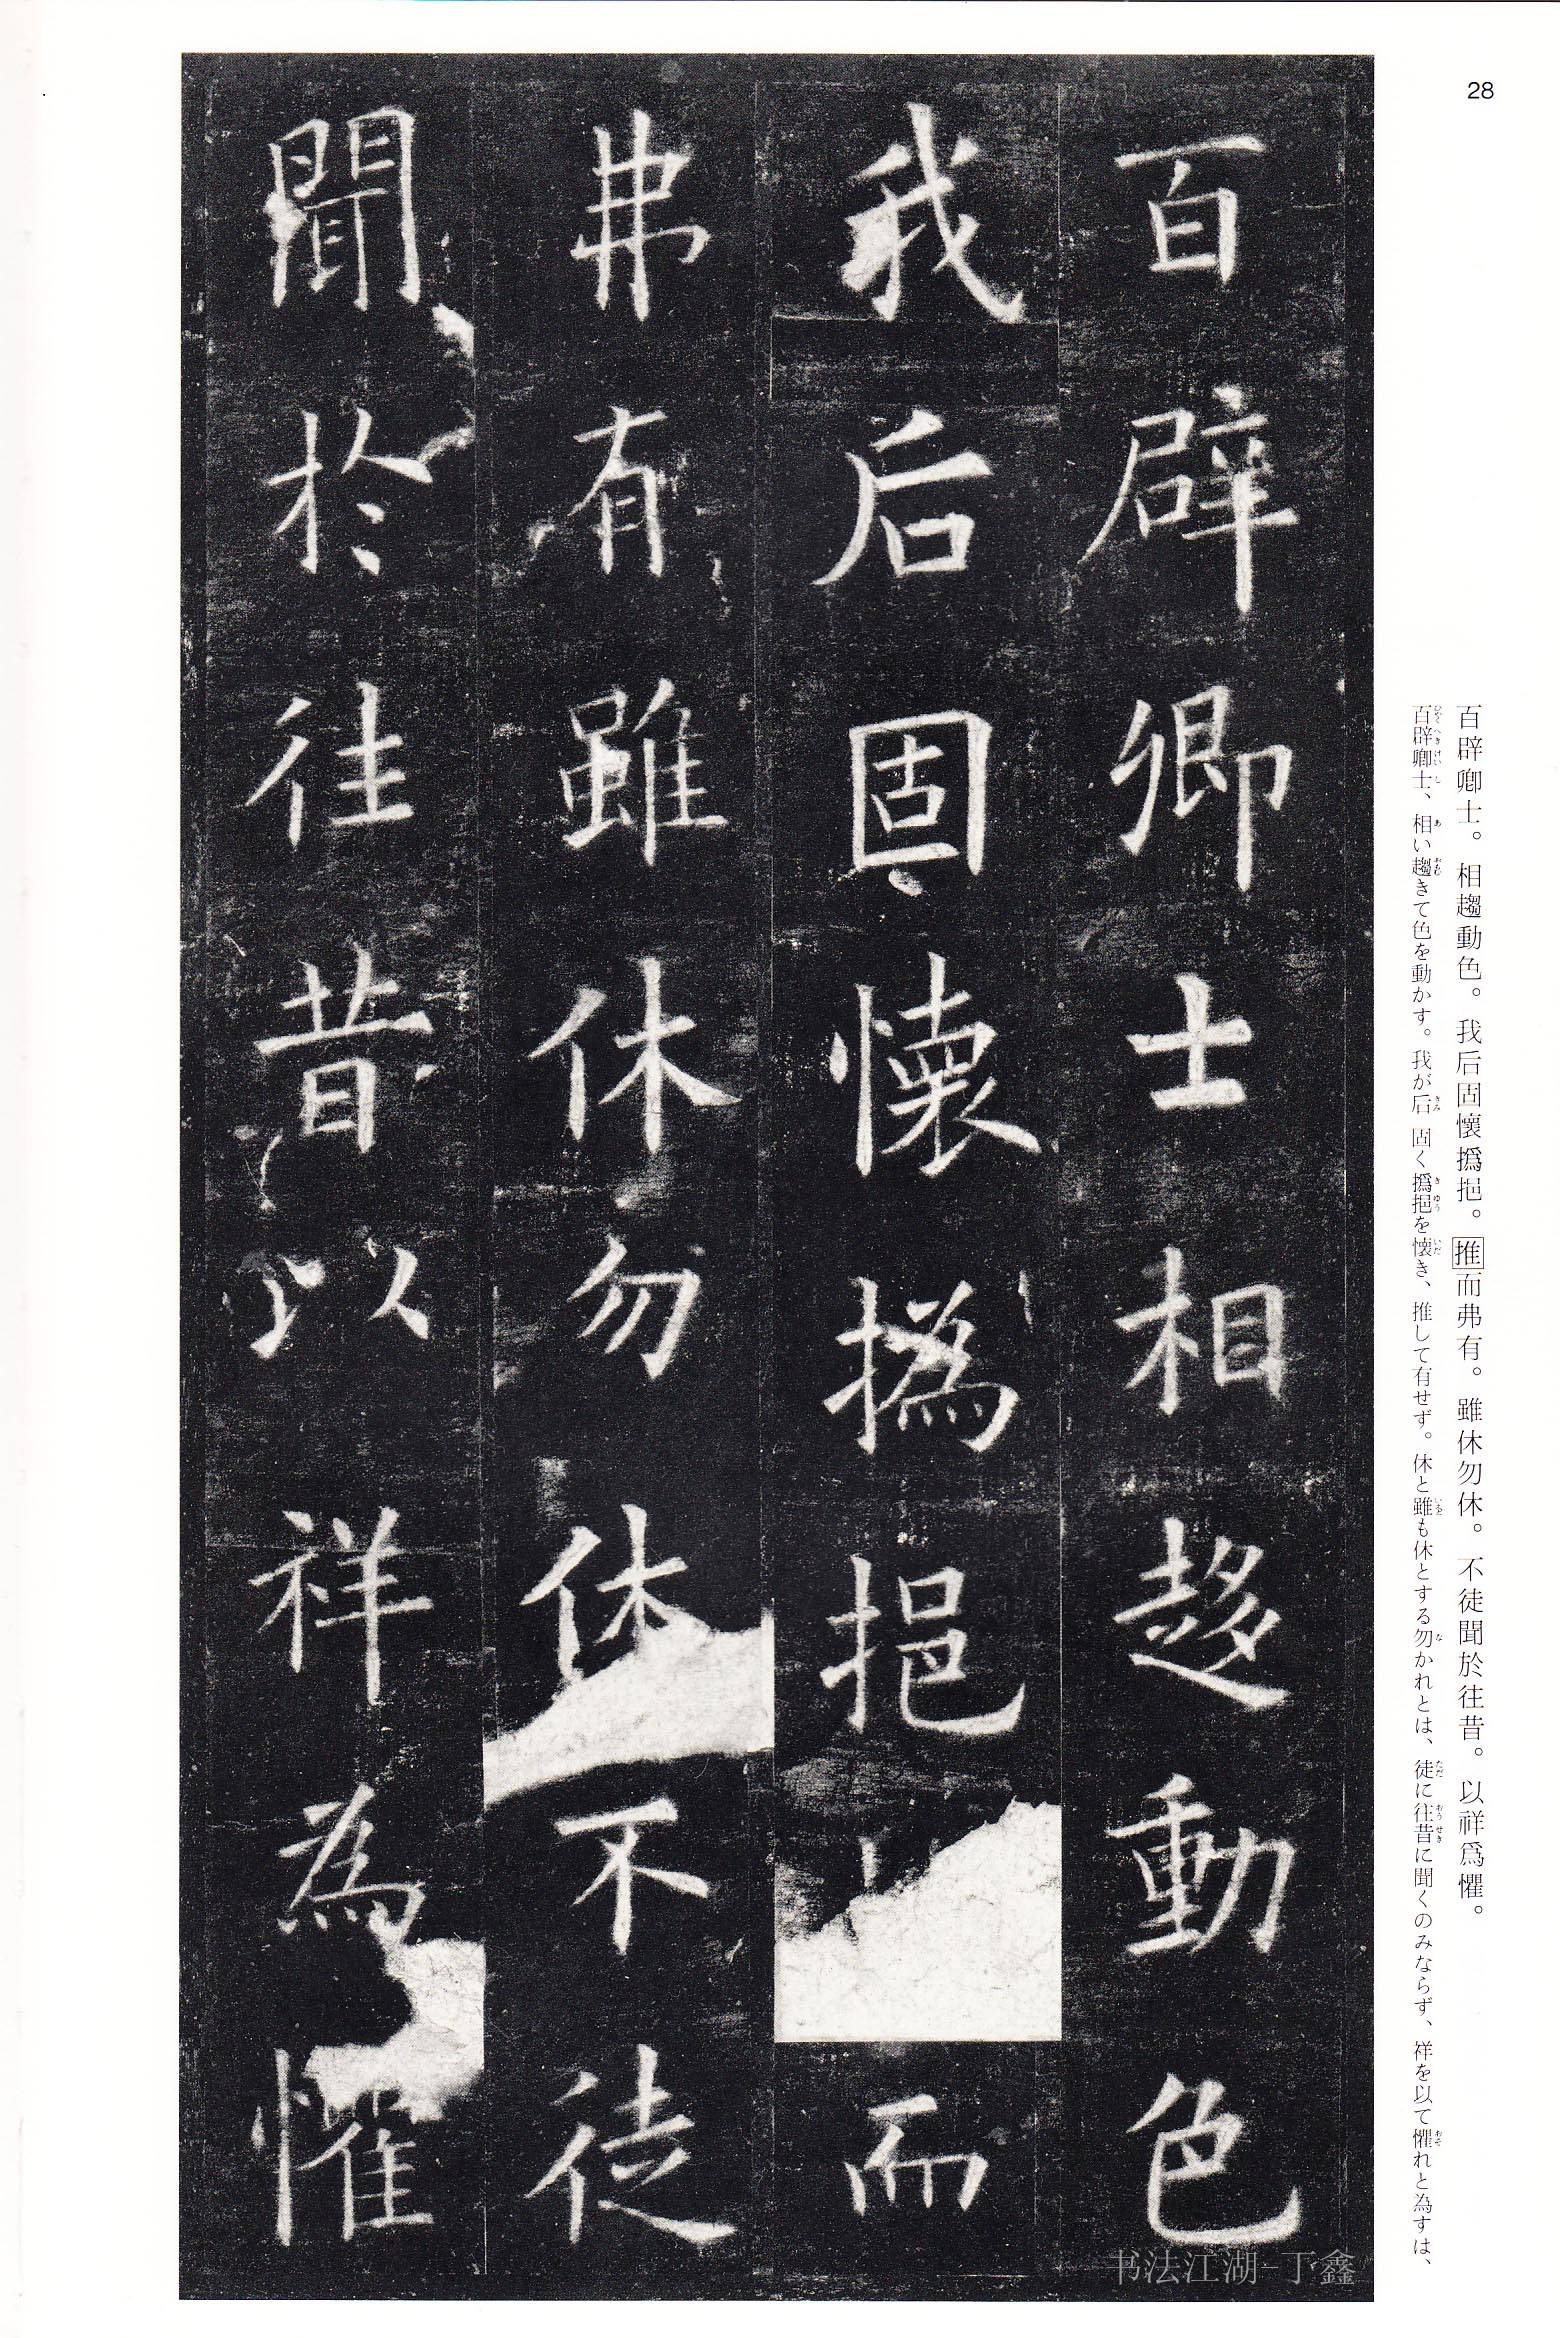 28
百辟卿士。相趨動色。我后固懷撝挹。推而弗有。雖休勿休。不徒聞於往昔。以祥爲懼。
百辟卿士、相い趨きて色を動かす。我が后 固く撝挹を懐き、推して有せず。休と雖も休とする勿かれとは、徒に往昔に聞くのみならず、祥を以て懼れと為すは、
百辟卿士相趍動色
我后固懷撝挹而
弗有雖休勿休不徒
聞於往昔以祥為懼
书法江湖-丁鑫